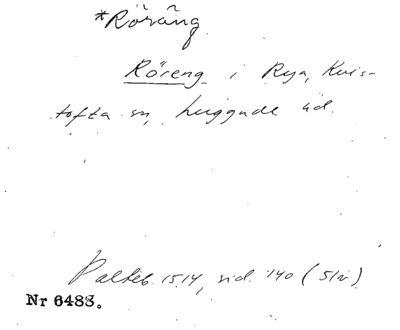 *Röräng
Röreng i Rya, Kvis-
tofta sn, huggude äd.
Palteb. 1514, sid. 140 (Slr)
Nr 6483.